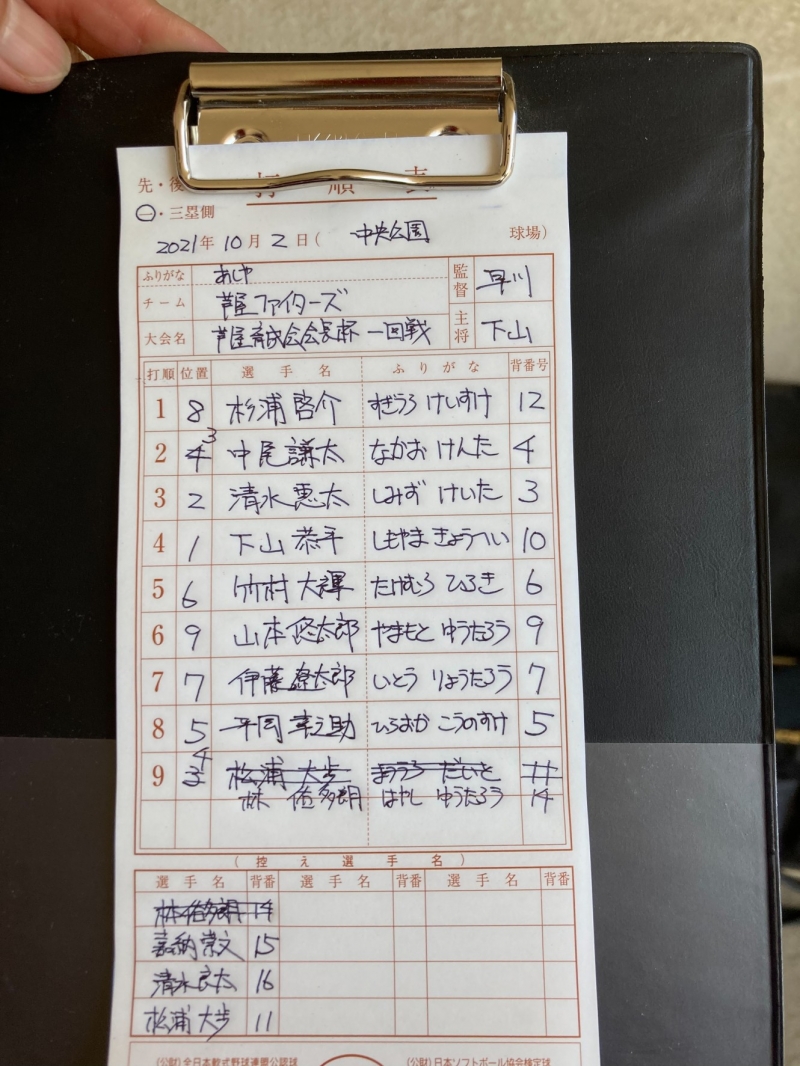 先・後
打順表
一・三塁側
2021年10月2日(中央公園 球場)
ふりがな あしや
チーム 芦屋ファイターズ
大会名 芦屋育成会会長杯 一回戦
監督 早川
主将 下山
打順 位置 選手名 ふりがな 背番号
1 8 杉浦啓介 すぎうら けいすけ 12
2 4 3 中尾謙太 なかお けんた 4
3 2 清水恵太 しみず けいた 3
4 1 下山恭平 しもやま きょうへい 10
5 6 竹村大輝 たけむら ひろき 6
6 9 山本悠太郎 やまもと ゆうたろう 9
7 7 伊藤遼太郎 いとう りょうたろう 7
8 5 平岡幸之助 ひらおか こうのすけ 5
9 3 4 松浦大歩 まつうら だいと 11
林 佑多朗 はやし ゆうたろう 14
(控え選手名)
選手名 背番 選手名 背番 選手名 背番
林佑多朗 14
嘉納崇文 15
清水良太 16
松浦大歩 11
(公財)全日本軟式野球連盟公認球 (公財)日本ソフトボール協会検定球